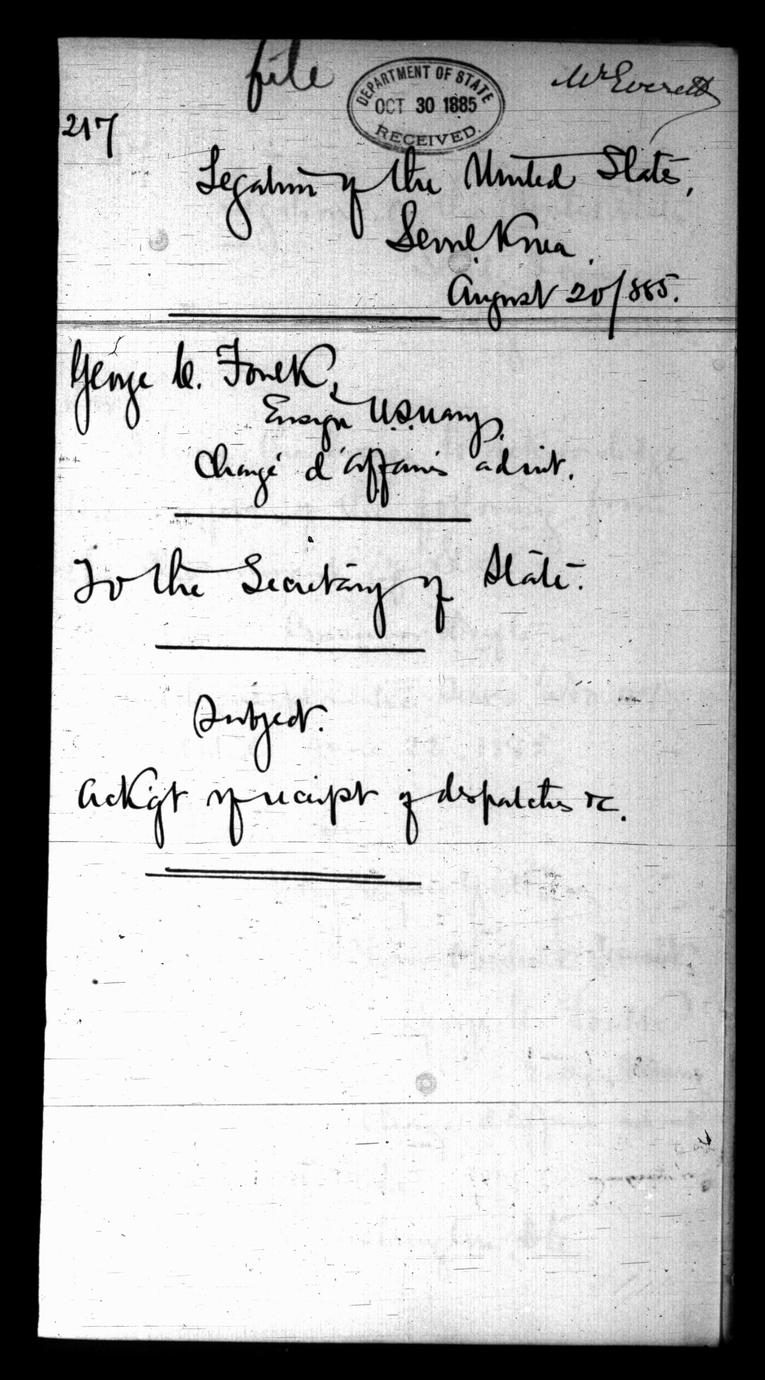 file
DEPARTMENT OF STATE
OCT 30 1885
RECEIVED.
Mr Everett
217
Legation of the United States,
Seoul Korea.
August 20/885.
George C. Foulk,
Ensign U.S. Navy,
Chargé d'Affaires ad int.
To the Secretary of State.
Subject.
Ackgt of receipt of despatches &c.